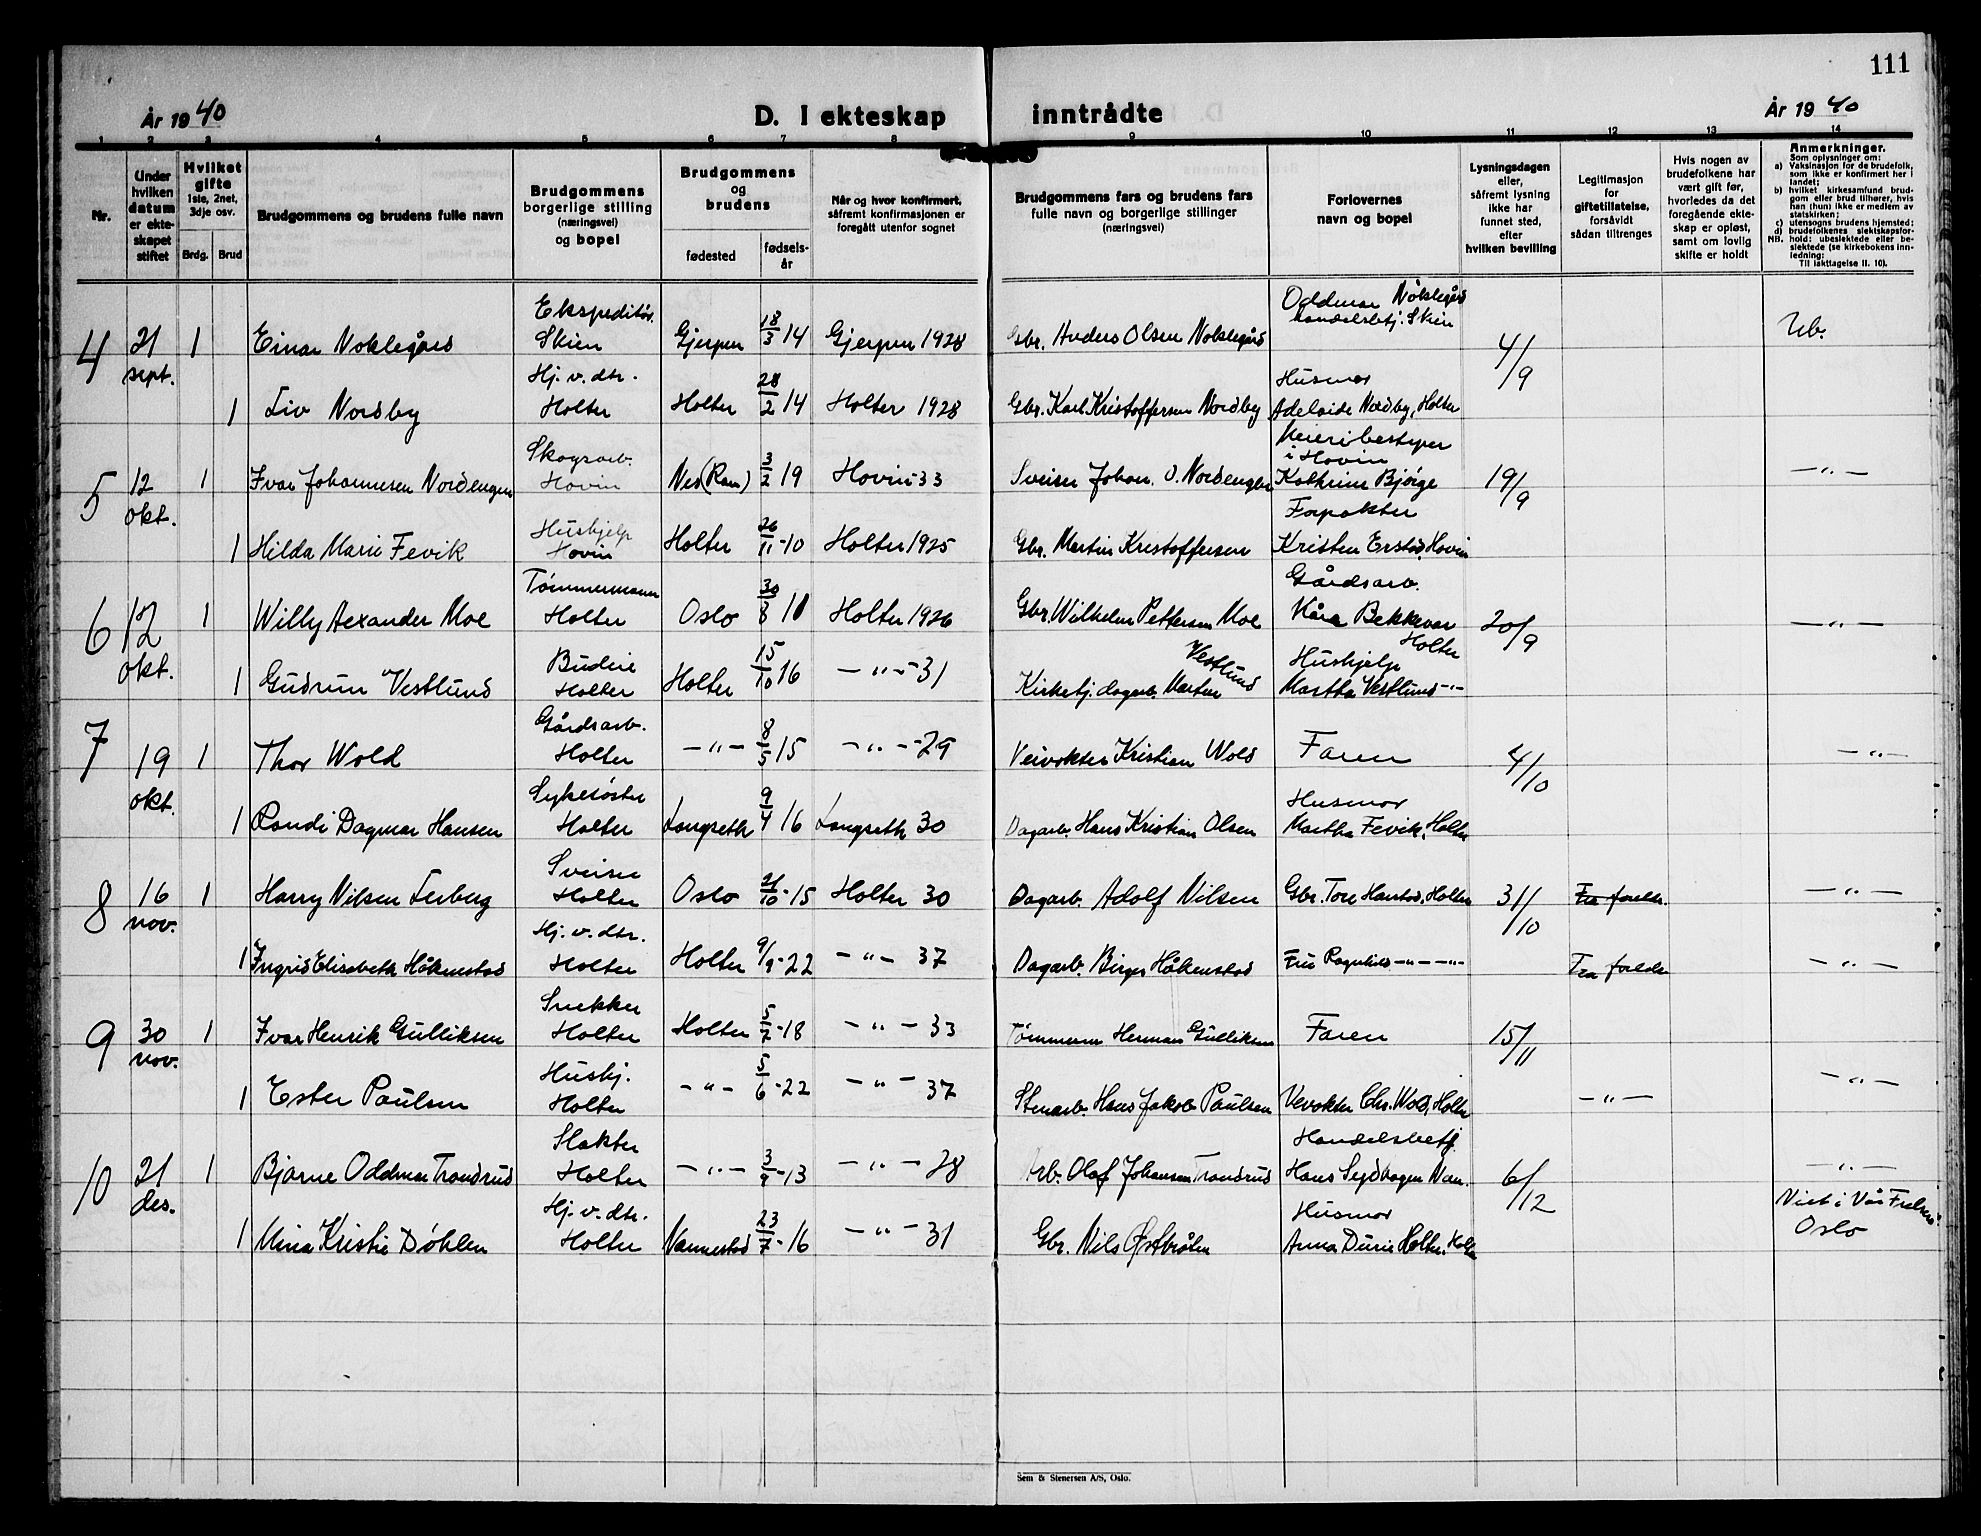 111
År 1940
D. I ekteskap inntrådte
År 1940
1 2 3 4 5 6 7 8 9 10 11 12 13 14
Nr.
Under hvilken datum er ekteskapet stiftet
Hvilket gifte 1ste, 2net, 3dje osv.
Brdg. Brud
Brudgommens og brudens fulle navn
Brudgommens borgerlige stilling (næringsvei) og bopel
Brudgommens og brudens
fødested
fødselsår
Når og hvor konfirmert, såfremt konfirmasjonen er foregått utenfor sognet
Brudgommens fars og brudens fars fulle navn og borgerlige stillinger (næringsvei)
Forlovernes navn og bopel
Lysningsdagen eller, såfremt lysning ikke har funnet sted, efter hvilken bevilling
Legitimasjon for giftetillatelse, forsåvidt sådan tiltrenges
Hvis nogen av brudefolkene har vært gift før, hvorledes da det foregående ekteskap er opløst, samt om lovlig skifte er holdt
Anmerkninger.
Som oplysninger om:
a) Vaksinasjon for de brudefolk, som ikke er konfirmert her i landet;
b) hvilket kirkesamfund brudgom eller brud tilhører, hvis han (hun) ikke er medlem av statskirken;
c) utensogns brudens hjemsted;
d) brudefolkenes slektskapsforhold: ubeslektede eller beslektede (se kirkebokens innledning:
NB. Til iakttagelse II. 10).
4 21 sept. 1 Einar Noklegård Ekspeditør. Skien Gjerpen 18/3 14 Gjerpen 1928 Gbr. Anders Olsen Noklegård Oddmar Nöklegård handelsbetj. Skien 4/9 Ub.
1 Liv Nordby Hj. v. dtr. Holter Holter 28/2 14 Holter 1928 Gbr. Karl Kristoffersen Nordby Husmor Adelaide Nordby, Holter
5 12 okt. 1 Ivar Johannesen Nordengen Skogsarb. Hovin Nes (Rom) 3/2 19 Hovin -33 Sveiser Johan. O. Nordengen Meieribestyrer i Hovin Kathrine Bjørge 19/9 -"-
1 Hilda Marie Fevik Hushjelp Hovin Holter 26/11 -10 Holter 1925 Gbr. Martin Kristoffersen Forpakter Kristen Erstad, Hovin
6 12 okt. 1 Willy Aexander Moe Tømmermann Holter Oslo 30/8 11 Holter 1926 Gbr. Wilhelm Pettersen Moe Gårdsarb. Kåre Bekkevar Holter 20/9 -"-
1 Gudrun Vestlund Budeie Holter Holter 15/10 16 -"- 31 Kirkebj. dagarb. Morten Vestlund Hushjelp Martha Vestlund -"-
7 19 okt. 1 Thor Wold Gårdsarb. Holter -"- 8/5 15 -"- 29 Veivokter Kristian Wold Faren 4/10 -"-
1 Randi Dagmar Hansen Sykesøster Holter Langseth 9/4 16 Langseth 30 Dagarb. Hans Kristian Olsen Husmor Martha Fevik, Holter
8 16 nov. 1 Harry Nilsen Lerberg Sveiser Holter Oslo 21/10 -15 Holter 30 Dagarb. Adolf Nilsen Gbr. Tore Harstad, Holter 31/10 Fra foreldr. -"-
1 Ingrid Elisabeth Håkenstad Hj. v. dtr. Holter Holter 9/9 -22 -"- 37 Dagarb. Birger Håkenstad Fru Ragnhild -"- -"- Fra foreldr -"-
9 30 nov. 1 Ivar Henrik Gulliksen Snekker Holter Holter 5/2 -18 -"- 33 Tømmerm Herman Gulliksen Faren 15/11
1 Ester Paulsen Hushj. Holter -"- 5/6 -22 -"- 37 Stenarb. Hans Jakob Paulsen Veivokter Chr. Wold, Holter -"- -"-
10 21 des. 1 Bjarne Oddmar Trondrud Slakter Holter -"- 3/9 -13 -"- 28 Arb. Olaf Johansen Trondrud Handelsbetj. Hans 6/12 -"-
1 Mina Kristie Døhlen Hj. v. dtr. Holter Nannestad 23/7 -16 -"- 31 Gbr. Nils Østbråten Husmor Anna Holter Viet i Vår Frelsers Oslo
Sem & Stenersen A/S, Oslo.